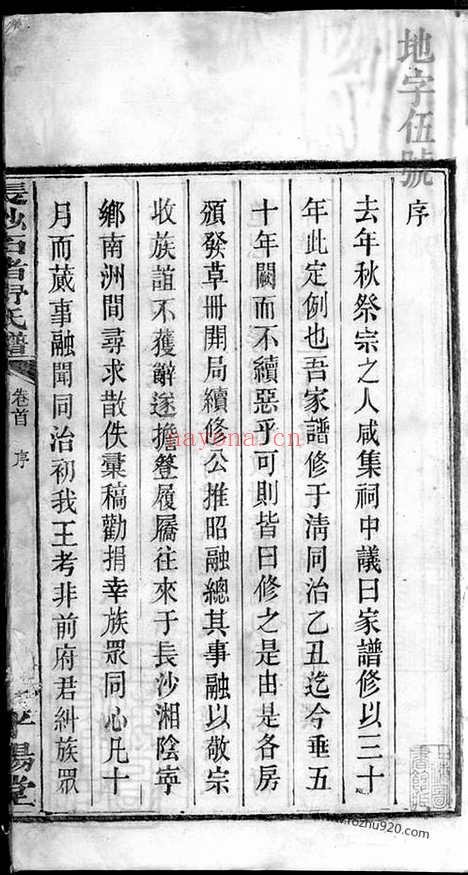 地字伍號
序
去年秋祭宗之人咸集祠中議曰家譜修以三十
年此定例也吾家譜修于淸同治乙丑迄今垂五
十年闕而不續惡乎可則皆曰修之是由是各房
頒發草冊開局續修公推昭融總其事融以敬宗
收族誼不獲辭遂擔簦履屩往來于長沙湘陰寧
鄉南洲間尋求散佚彙稿勸捐幸族眾同心凡十
月而蕆事融聞同治初我王考非前府君糾族眾
長沙石渚
氏譜
卷首
序
平陽堂
nayona.cn
www.rozhu920.com